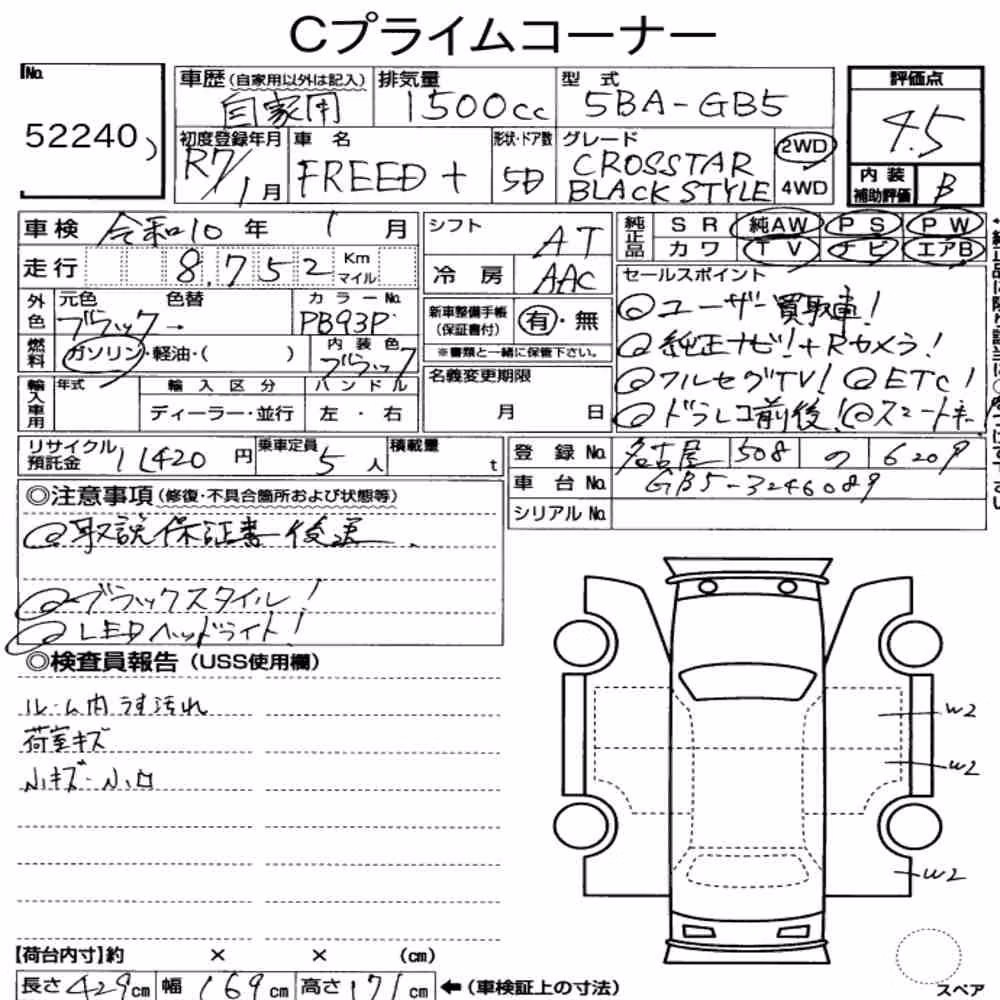 Cプライムコーナー
No.
52240
車歴(自家用以外は記入) 排気量 型式 評価点
自家用 1500cc 5BA-GB5 4.5
初度登録年月 車名 形状・ドア数 グレード 2WD
R7/1月 FREED+ 5D CROSSTAR BLACK STYLE 4WD
内装補助評価 B
車検 令和10年 1月
シフト AT
純正品 SR 純AW PS PW
カワ TV ナビ エアB
走行 8,752 Km マイル
冷房 AAC
セールスポイント
◎ユーザー買取車!
◎純正ナビ!+Rカメラ!
◎フルセグTV! ◎ETC!
◎ドラレコ前後! ◎スマートキー!
外色 元色 色替 カラーNo.
ブラック → PB93P
新車整備手帳(保証書付) 有・無
※書類と一緒に保管下さい。
燃料 ガソリン・軽油・( ) 内装色 ブラック
輸入車用 年式 輸入区分 ハンドル
ディーラー・並行 左・右
名義変更期限
月 日
リサイクル預託金 11420円 乗車定員 5人 積載量 t
登録No. 名古屋 508 の 6209
車台No. GB5-3246089
シリアルNo.
◎注意事項(修復・不具合箇所および状態等)
◎取説保証書後送.
◎ブラックスタイル!
◎LEDヘッドライト!
◎検査員報告(USS使用欄)
ルーム内うす汚れ
荷室キズ
小キズ・小凹
W2
W2
W2
【荷台内寸】約 × × (cm)
長さ429cm 幅169cm 高さ171cm ←(車検証上の寸法)
スペア